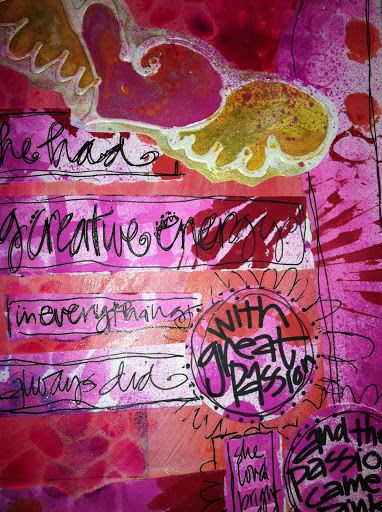 he had
g creative energy
in everything
always did
with
great
passion
she
bright
and the
passion
came